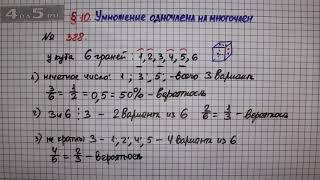 4 на 5.ru
§10. Умножение одночлена на многочлен
№ 328.
у куба 6 граней: 1, 2, 3, 4, 5, 6
1) нечетное число: 1; 3; 5; - всего 3 вариант
3/6 = 1/2 = 0,5 = 50% - вероятность
2) 3 и 6 ⋮ 3 - 2 варианта из 6 2/6 = 1/3 - вероятн.
3) не кратны 3 - 1, 2, 4, 5 - 4 варианта из 6
4/6 = 2/3 - вероятность